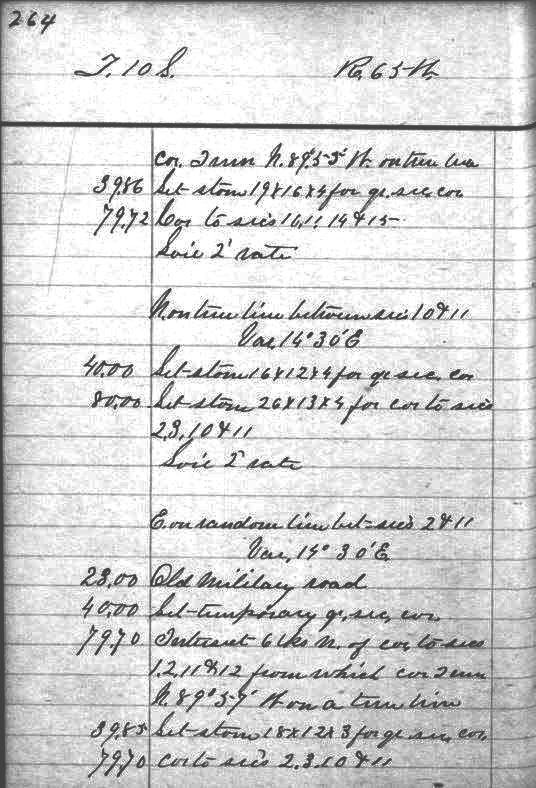 264
T. 10 S. R. 65 W.
cor. I run N. 89° 53' W. on true line
39.86 Set stone 19x16x4 for qr. sec. cor.
79.72 Cor to secs 10, 11, 14 & 15
Soil 2' rate
N. on true line between secs 10 & 11
Var. 14° 30' E
40.00 Set stone 16x12x4 for qr sec. cor
80.00 Set stone 26x13x4 for cor to secs
2, 3, 10 & 11
Soil 2' rate
E. on random line bet- secs 2 & 11
Var. 14° 30' E.
23.00 Old Military road
40.00 Set temporary qr. sec. cor.
79.70 Intersect 6 lks N. of cor. to secs
1. 2. 11 & 12 from which cor I run
N. 89° 57' W on a true line
39.85 Set stone 18x12x3 for qr. sec. cor.
79.70 cor to secs 2. 3. 10 & 11